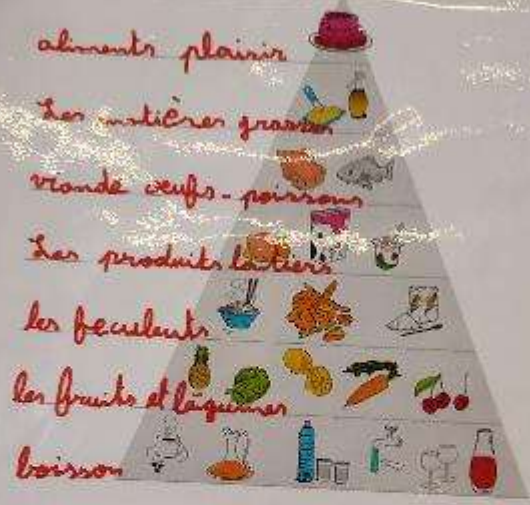 aliments plaisir
Les matières grasses
viande œufs - poissons
Les produits laitiers
les feculents
les fruits et légumes
boisson